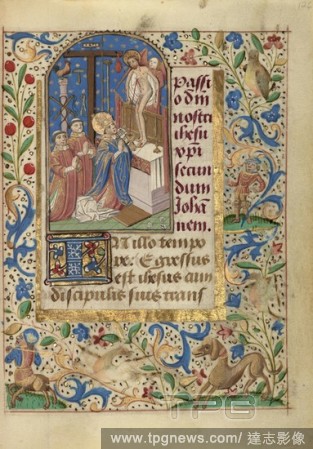 Passi
o dñi
nostri
ihesu
xp̄i
secun
dum
Johā
nem.
In illo tempo
re: Egressus
est ihesus cum
discipulis suis trans
TPG
www.tpgnews.com/ 達志影像